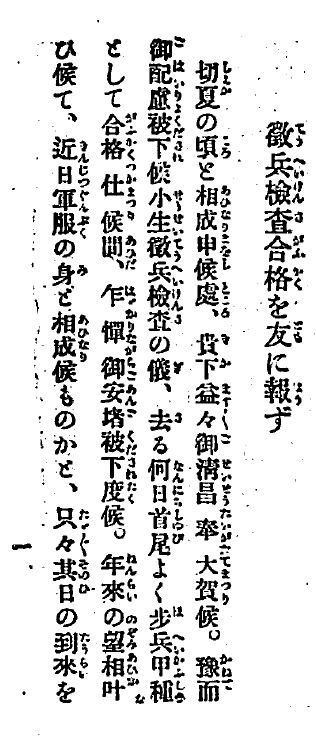 徵兵檢查合格を友に報ず
切夏の頃と相成申候處、貴下益々御淸昌奉大賀候。豫而
御配慮被下候小生徵兵檢查の儀、去る何日首尾よく步兵甲種
として合格仕候間、乍憚御安堵被下度候。年來の望相叶
ひ候て、近日軍服の身と相成候ものかと、只々其日の到來を
一